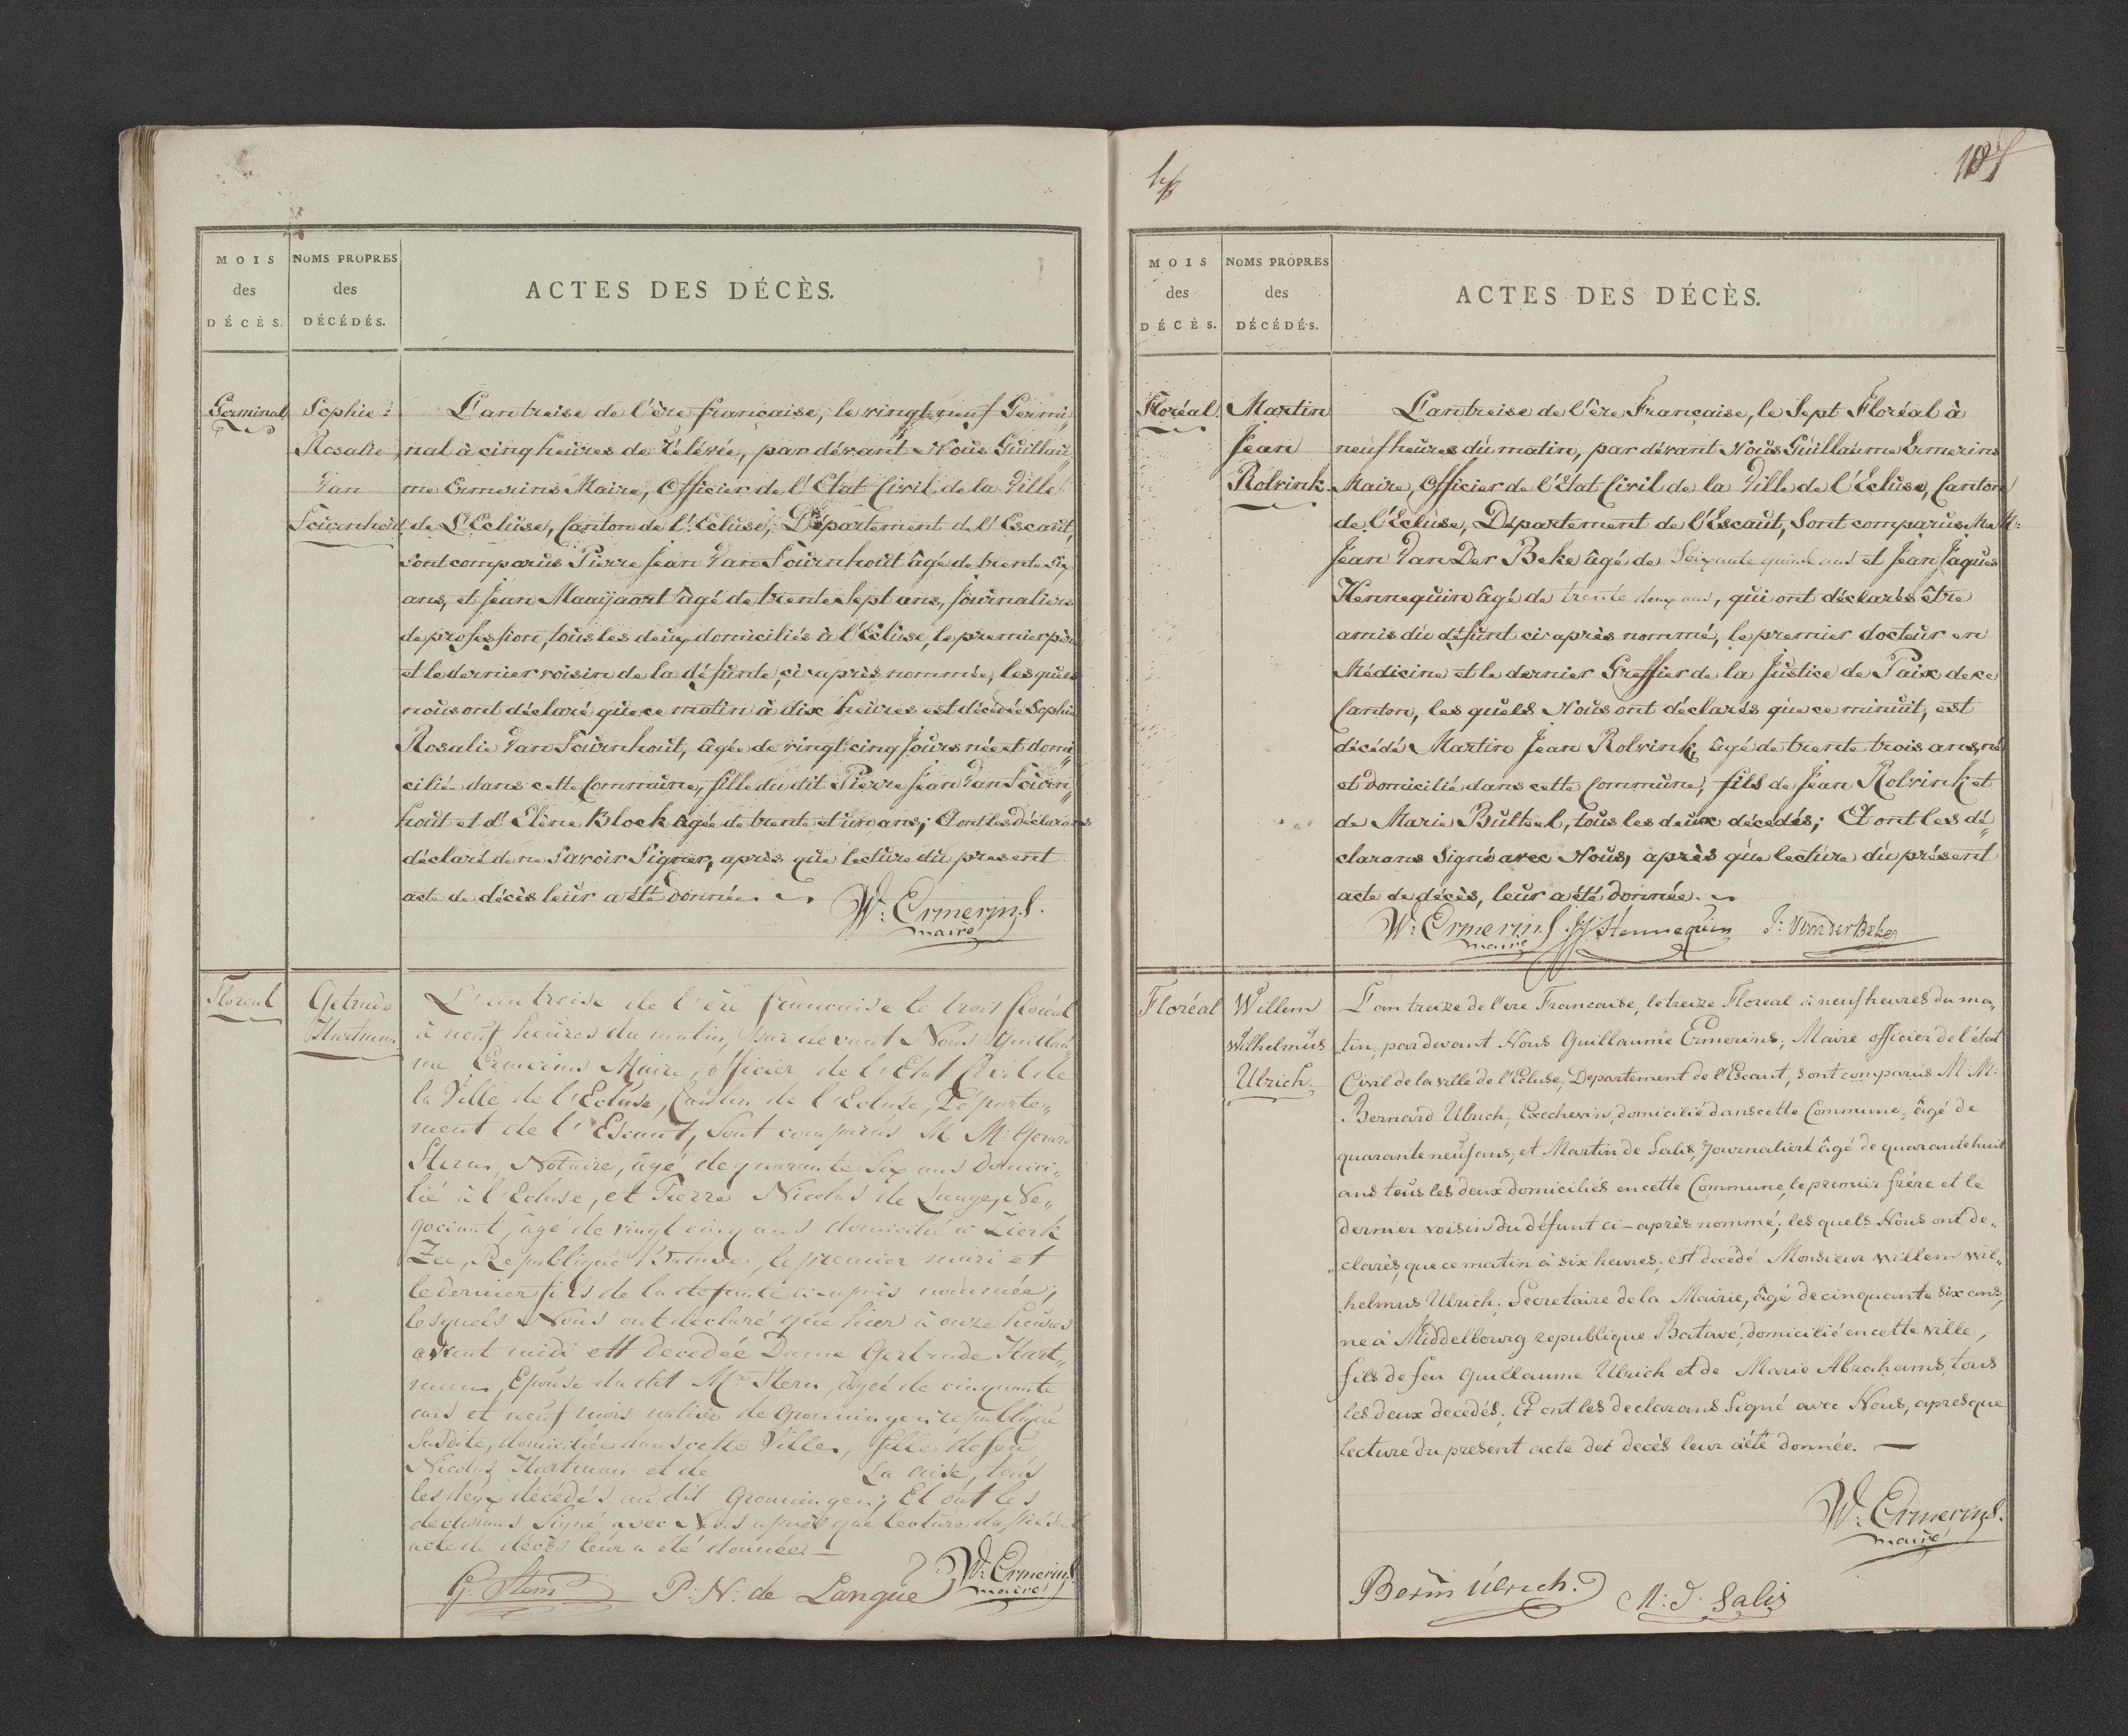 MOIS
des
DÉCÈS.
NOMS PROPRES
des
DÉCÉDÉS.
ACTES DES DÉCÈS.
Germinal
Sophie
Rosalie
Van
Tournhout
L'an treise de l'ère française, le vingt neuf Germi„
nal à cinq heures de rélévée, par dévant Nous Guillau„
me Ermerins Maire, Officier de l'Etat Civil de la Ville
de L'Ecluse, Canton de l'Ecluse, Département de l'Escaut,
sont comparus Pierre Jean Van Tournhout âgé de trente six
ans, et Jean Maaijaart âgé de trente sept ans, journaliers
de profession, tous les deux domiciliés à l'Ecluse, le premier père
et le dernier voisin de la défunte, ci après nommée, les quels
nous ont déclaré que ce matin à dix heures est décédée Sophie
Rosalie Van Tournhout, âgée de vingt cinq jours née et domi„
ciliée dans cette Commune, fille du dit Pierre Jean Van Tourn„
hout et d'Elène Block âgée de trente et un ans; Et ont les Déclarans
déclaré de ne Savoir Signer, après que lecture du present
acte de décès leur a été donnée.
W: Ermerins.
maire
Floreal
Getrude
Hartman
L'an treise de l'ère francaise le trois floréal
à neuf heures du matin, par devant Nous Guillau„
me Ermerins Maire, officier de l'Etat Civil de
la Ville de l'Ecluse, Canton de l'Ecluse, Départe„
ment de l'Escaut, Sont comparus M M: Gerard
Stern, Notaire, âgé de quarante Six ans Domici„
lié à l'Ecluse, et Pierre Nicolas de Lange, Ne„
gociant, âgé de vingt cinq ans domicilié à Zierk
Zee, Republique Batave, le premier mari et
le dernier fils de la defunte ci-après nommée;
lesquels Nous ont declaré que hier à onze heures
avant midi est decedée Dame Gertrude Hart„
man, Epouse du dit Mr. Stern, âgée de cinquante
ans et neuf mois native de Gronningen republique
Susdite, domiciliée dans cette Ville, fille de feu
Nicolas Hartman et de La Cuise, tous
les deux décédés au dit Gronningen; Et ont les
declarans Signé avec Nous après que lecture du présent
acte de décès leur a été donnée.
G. Stern
P: N: de Langue
W: Ermerins.
maire
MOIS
des
DÉCÈS.
NOMS PROPRES
des
DÉCÉDÉS.
ACTES DES DÉCÈS.
Floréal.
Martin
Jean
Rolvink.
L'an treise de l'ère Française, le Sept Floréal à
neuf heures du matin, par dévant Nous Guillaume Ermerins
Maire, Officier de l'Etat Civil de la Ville de l'Ecluse, Canton
de l'Ecluse, Département de l'Escaut, Sont comparus M M:
Jean Van Der Beke âgé de Soixante quinze ans et Jean Jaques
Hennequin âgé de trente deux ans, qui ont déclarés être
amis du défunt ci après nommé, le premier docteur en
Médicine et le dernier Greffier de la Justice de Paix de ce
Canton, les quels Nous ont déclarés que ce minuit, est
décédé Martin Jean Rolvink, âgé de trente trois ans, né
et domicilié dans cette Commune, fils de Jean Rolvink et
de Marie Bulteel, tous les deux décedés; Et ont les dé„
clarans Signé avec Nous, après que lecture du présent
acte de décès, leur a été donnée.
W: Ermerins
maire
JJ Hennequin
J: Van der Beke
Floréal
Willem
Wilhelmus
Ulrich
L'an treize de l'ere Francaise, le treize Floreal à neuf heures du ma„
„tin, par devant Nous Guillaume Ermerins, Maire officier de l'état
Civil de la ville de l'Ecluse, Departement de l'Escaut, sont comparus M M:
Bernard Ulrich, Exechevin, domicilié dans cette Commune, âgé de
quarante neuf ans, et Martin de Salis, Journaliert âgé de quarante huit
ans tous les deux domiciliés en cette Commune, le premier frére et le
dernier voisin du défunt ci-après nommé, les quels Nous ont de„
„clarés, que ce matin à six heures, est decedé Monsieur Willem Wil„
helmus Ulrich, Secretaire de la Mairie, âgé de cinquante six ans,
ne à Middelbourg republique Batave, domicilié en cette ville,
fils de feu Guillaume Ulrich et de Marie Abrahams, tous
les deux decedés. Et ont les declarans Signé avec Nous, apres que
lecture du present acte det decès leur a été donnée.
W: Ermerins.
maire
Bern Ulrich.
M: D: Salis